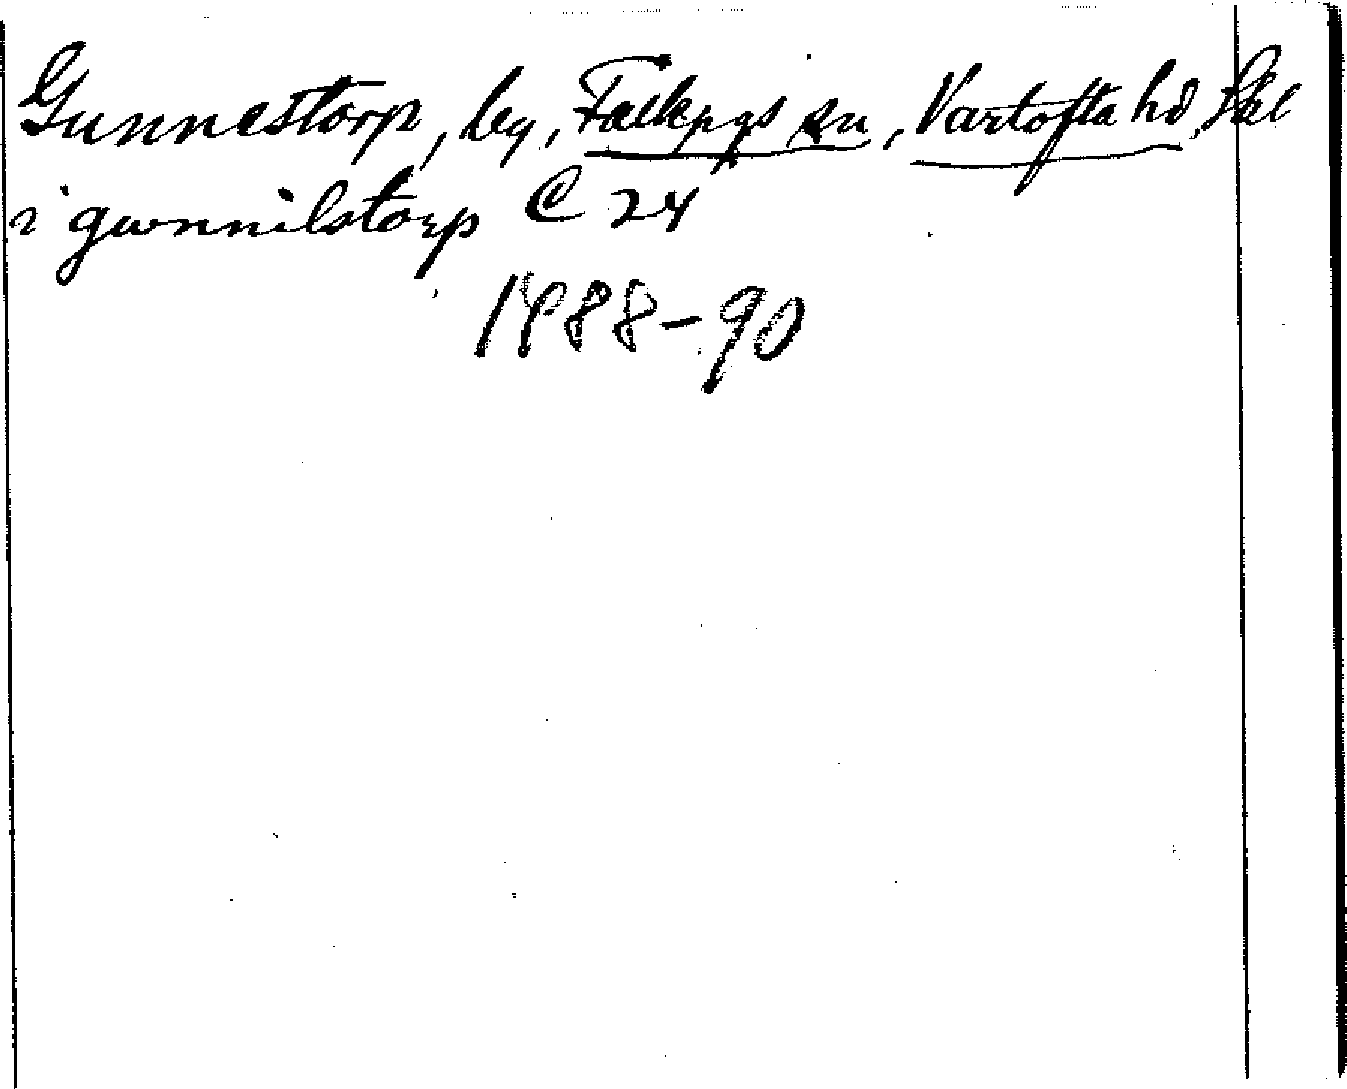 Gunnestorp, by, Falkpgs sn, Vartofta hd, Skl
i gwnnilstorp C 24
1888-90